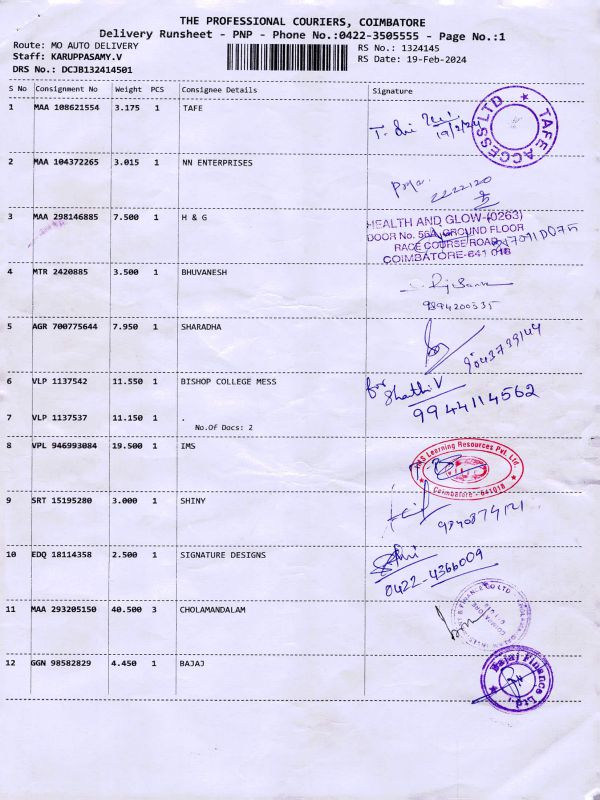 THE PROFESSIONAL COURIERS, COIMBATORE
Delivery Runsheet - PNP - Phone No.:0422-3505555 - Page No.:1
Route: MO AUTO DELIVERY
RS No.: 1324145
Staff: KARUPPASAMY.V
RS Date: 19-Feb-2024
DRS No.: DCJB132414501
S No Consignment No Weight PCS Consignee Details Signature
1 MAA 108621554 3.175 1 TAFE
19/2/24
TAFE ACCESS LTD
2 MAA 104372265 3.015 1 NN ENTERPRISES
3 MAA 298146885 7.500 1 H & G
HEALTH AND GLOW-(0263)
DOOR No. 56A, GROUND FLOOR
RACE COURSE ROAD
COIMBATORE-641 018
4 MTR 2420885 3.500 1 BHUVANESH
9894200335
5 AGR 700775644 7.950 1 SHARADHA
9043739144
6 VLP 1137542 11.550 1 BISHOP COLLEGE MESS
for
Shathi V
9944114562
7 VLP 1137537 11.150 1 .
No.Of Docs: 2
8 VPL 946993084 19.500 1 IMS
Learning Resources Pvt. Ltd.
Coimbatore - 641018
9 SRT 15195280 3.000 1 SHINY
10 EDQ 18114358 2.500 1 SIGNATURE DESIGNS
0422-4366009
11 MAA 293205150 40.500 3 CHOLAMANDALAM
12 GGN 98582829 4.450 1 BAJAJ
Bajaj Finance Ltd